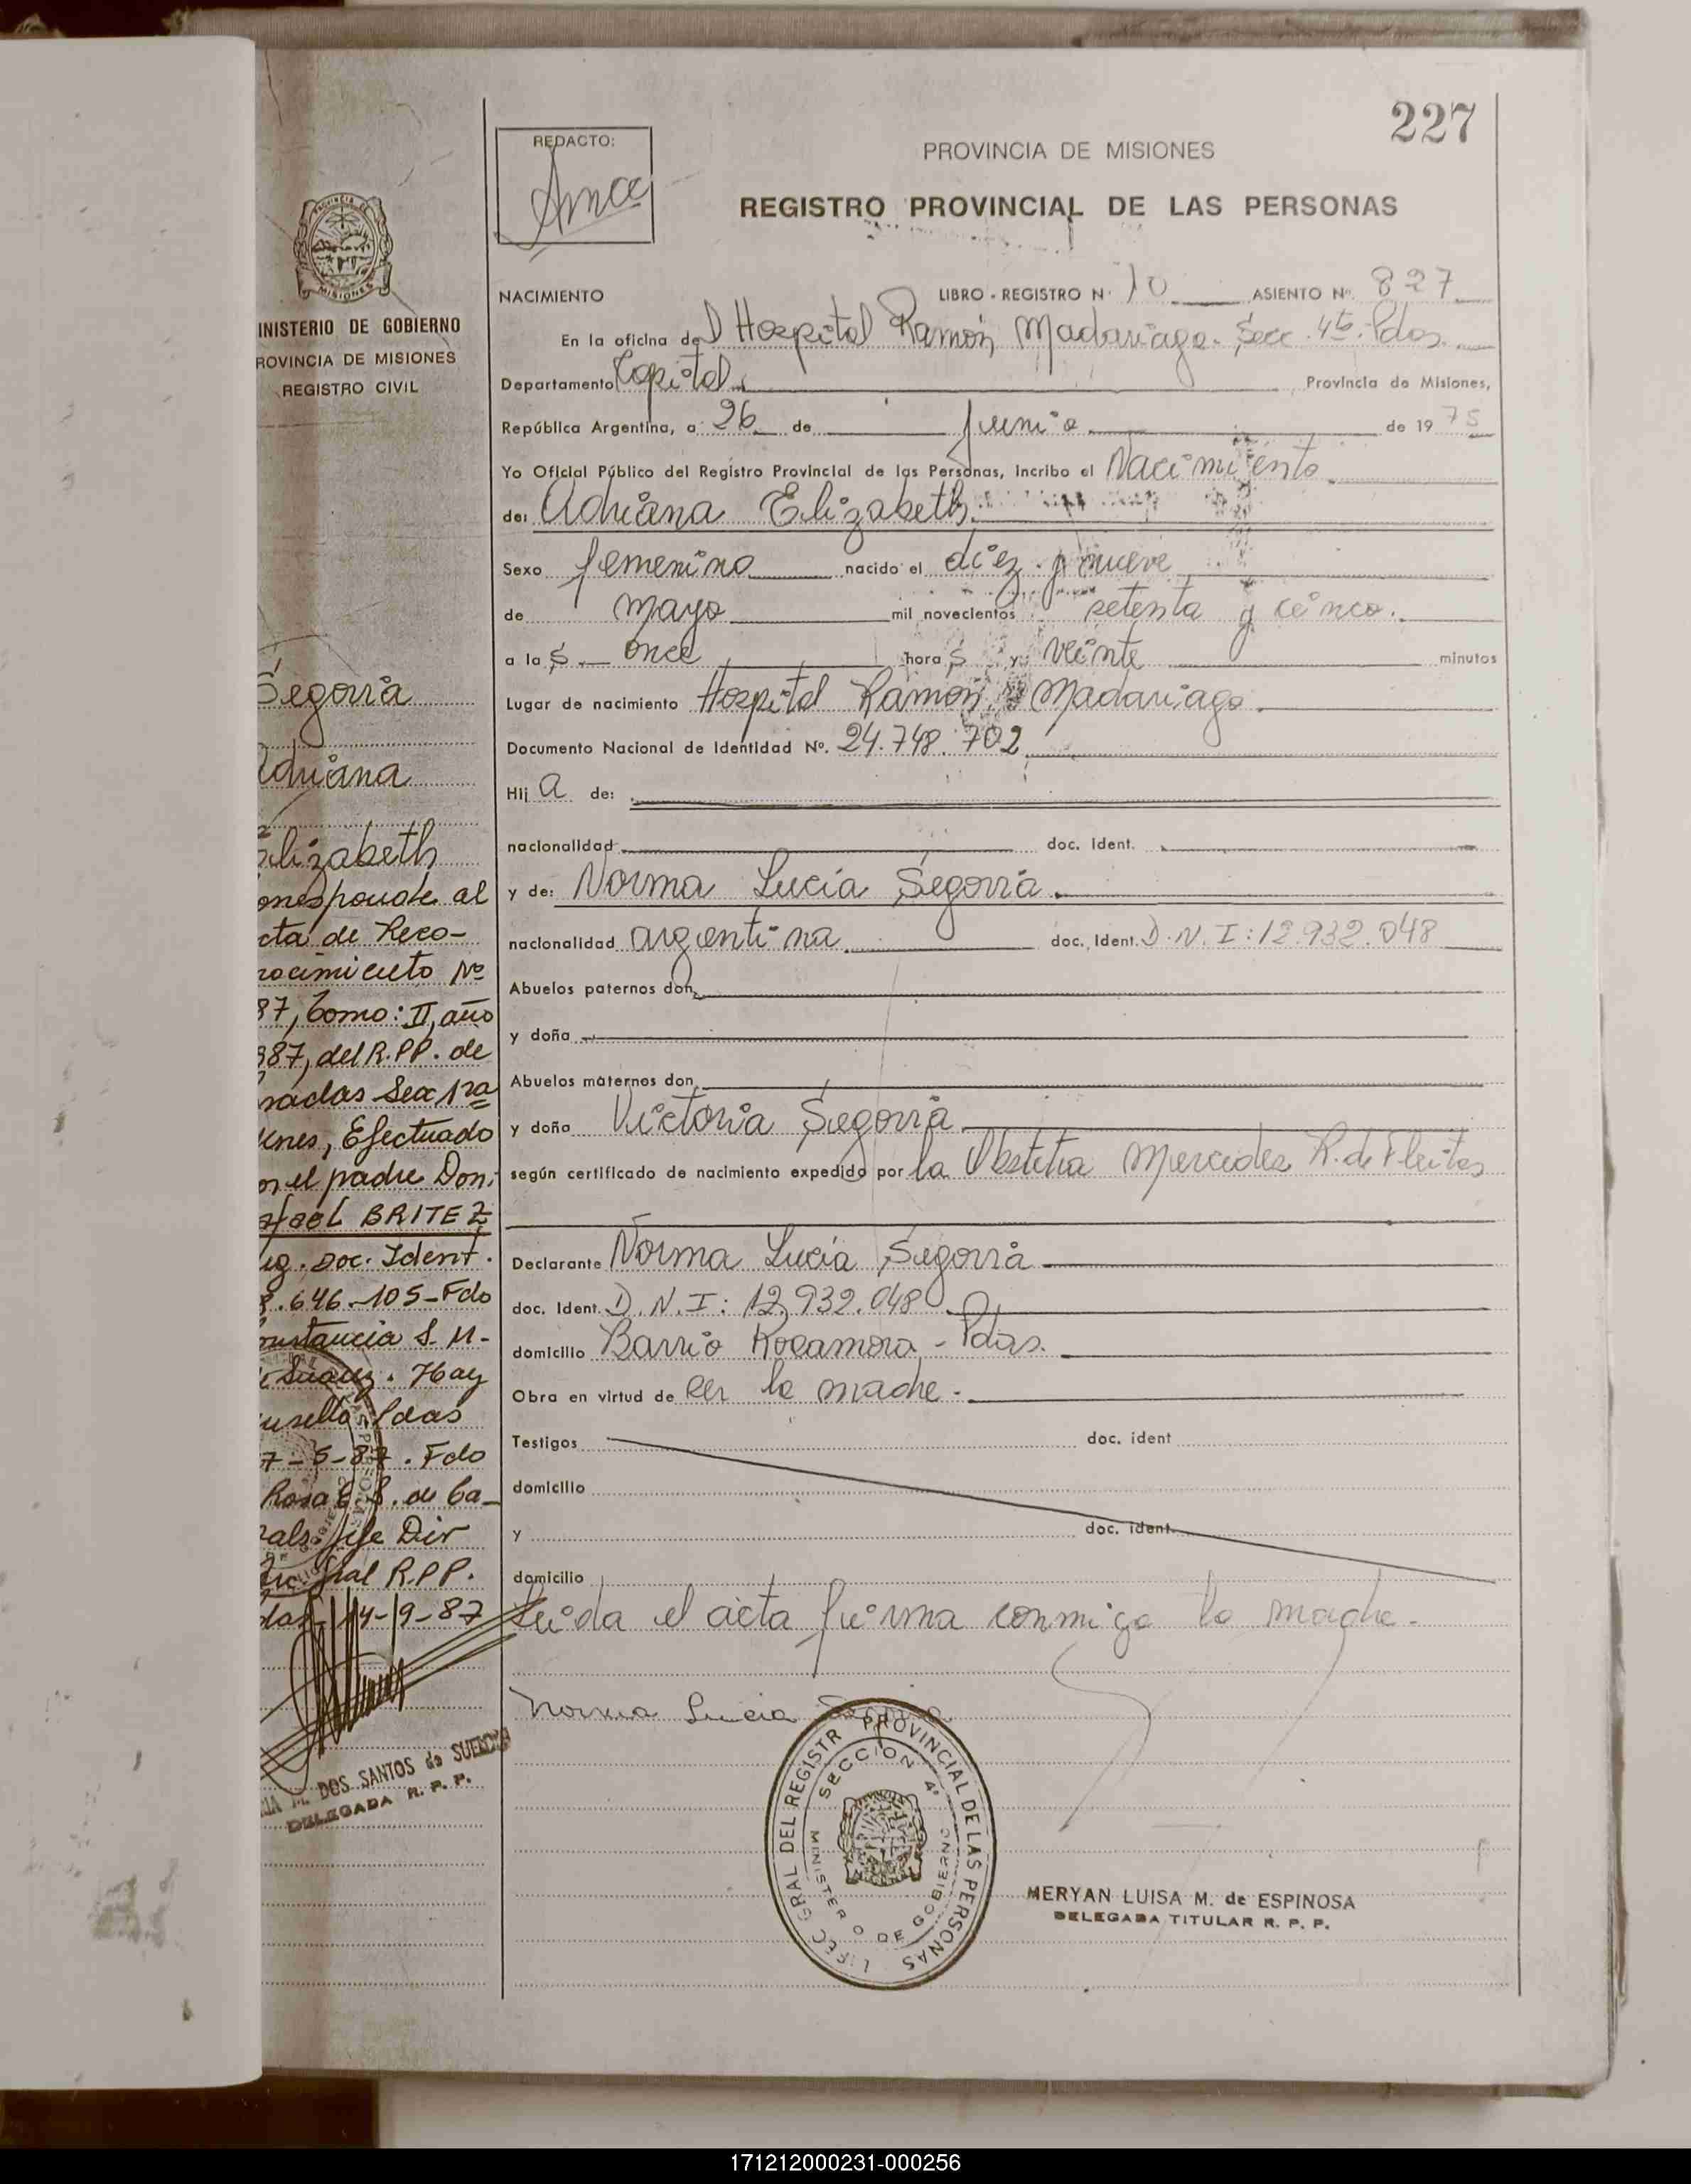 227
REDACTO:
PROVINCIA DE MISIONES
REGISTRO PROVINCIAL DE LAS PERSONAS
NACIMIENTO LIBRO - REGISTRO Nº 10 ASIENTO Nº 827
En la oficina del Hospital Ramón Madariaga - Secc. 4ta. Pdas.
Departamento Capital Provincia de Misiones,
República Argentina, a 26 de junio de 1975
Yo Oficial Público del Registro Provincial de las Personas, incribo el Nacimiento
de: Adriana Elizabeth
Sexo femenino nacido el diez y nueve
de mayo mil novecientos setenta y cinco.
a las once horas y veinte minutos
Lugar de nacimiento Hospital Ramón Madariaga.
Documento Nacional de Identidad Nº. 24.748.702
Hija de:
nacionalidad doc. Ident.
y de: Norma Lucía Segovia
nacionalidad argentina doc. Ident. D.N.I: 12.932.048
Abuelos paternos don
y doña
Abuelos maternos don
y doña Victoria Segovia
según certificado de nacimiento expedido por la Obstetra Mercedes R. de Fleitas
Declarante Norma Lucía Segovia
doc. Ident. D.N.I: 12.932.048
domicilio Barrio Rocamora - Pdas.
Obra en virtud de ser la madre.
Testigos doc. ident
domicilio
y doc. ident.
domicilio
Leída el acta firma conmigo la madre.
Norma Lucia
OFIC GRAL DEL REGISTR PROVINCIAL DE LAS PERSONAS
SECCION 4ª
MINISTERIO DE GOBIERNO
MERYAN LUISA M. de ESPINOSA
DELEGADA TITULAR R. P. P.
PROVINCIA DE
MISIONES
INISTERIO DE GOBIERNO
ROVINCIA DE MISIONES
REGISTRO CIVIL
Segovia
driana
Elizabeth
rresponde al
cta de Reco-
nocimiento Nº
87, Tomo: II, año
987, del R.PP. de
sadas Secc 1ra
nes, Efectuado
or el padre Don:
afael BRITEZ
rg. Doc. Ident.
.646.105-Fdo
onstancia S. M.
Suarez. Hay
un sello Pdas
7-5-87. Fdo
Rosa E. S. de Ca-
Jefe Dir
Gral R.P.P.
das 14-9-87
IA M. DOS SANTOS de
DELEGADA R. P. P.
171212000231-000256